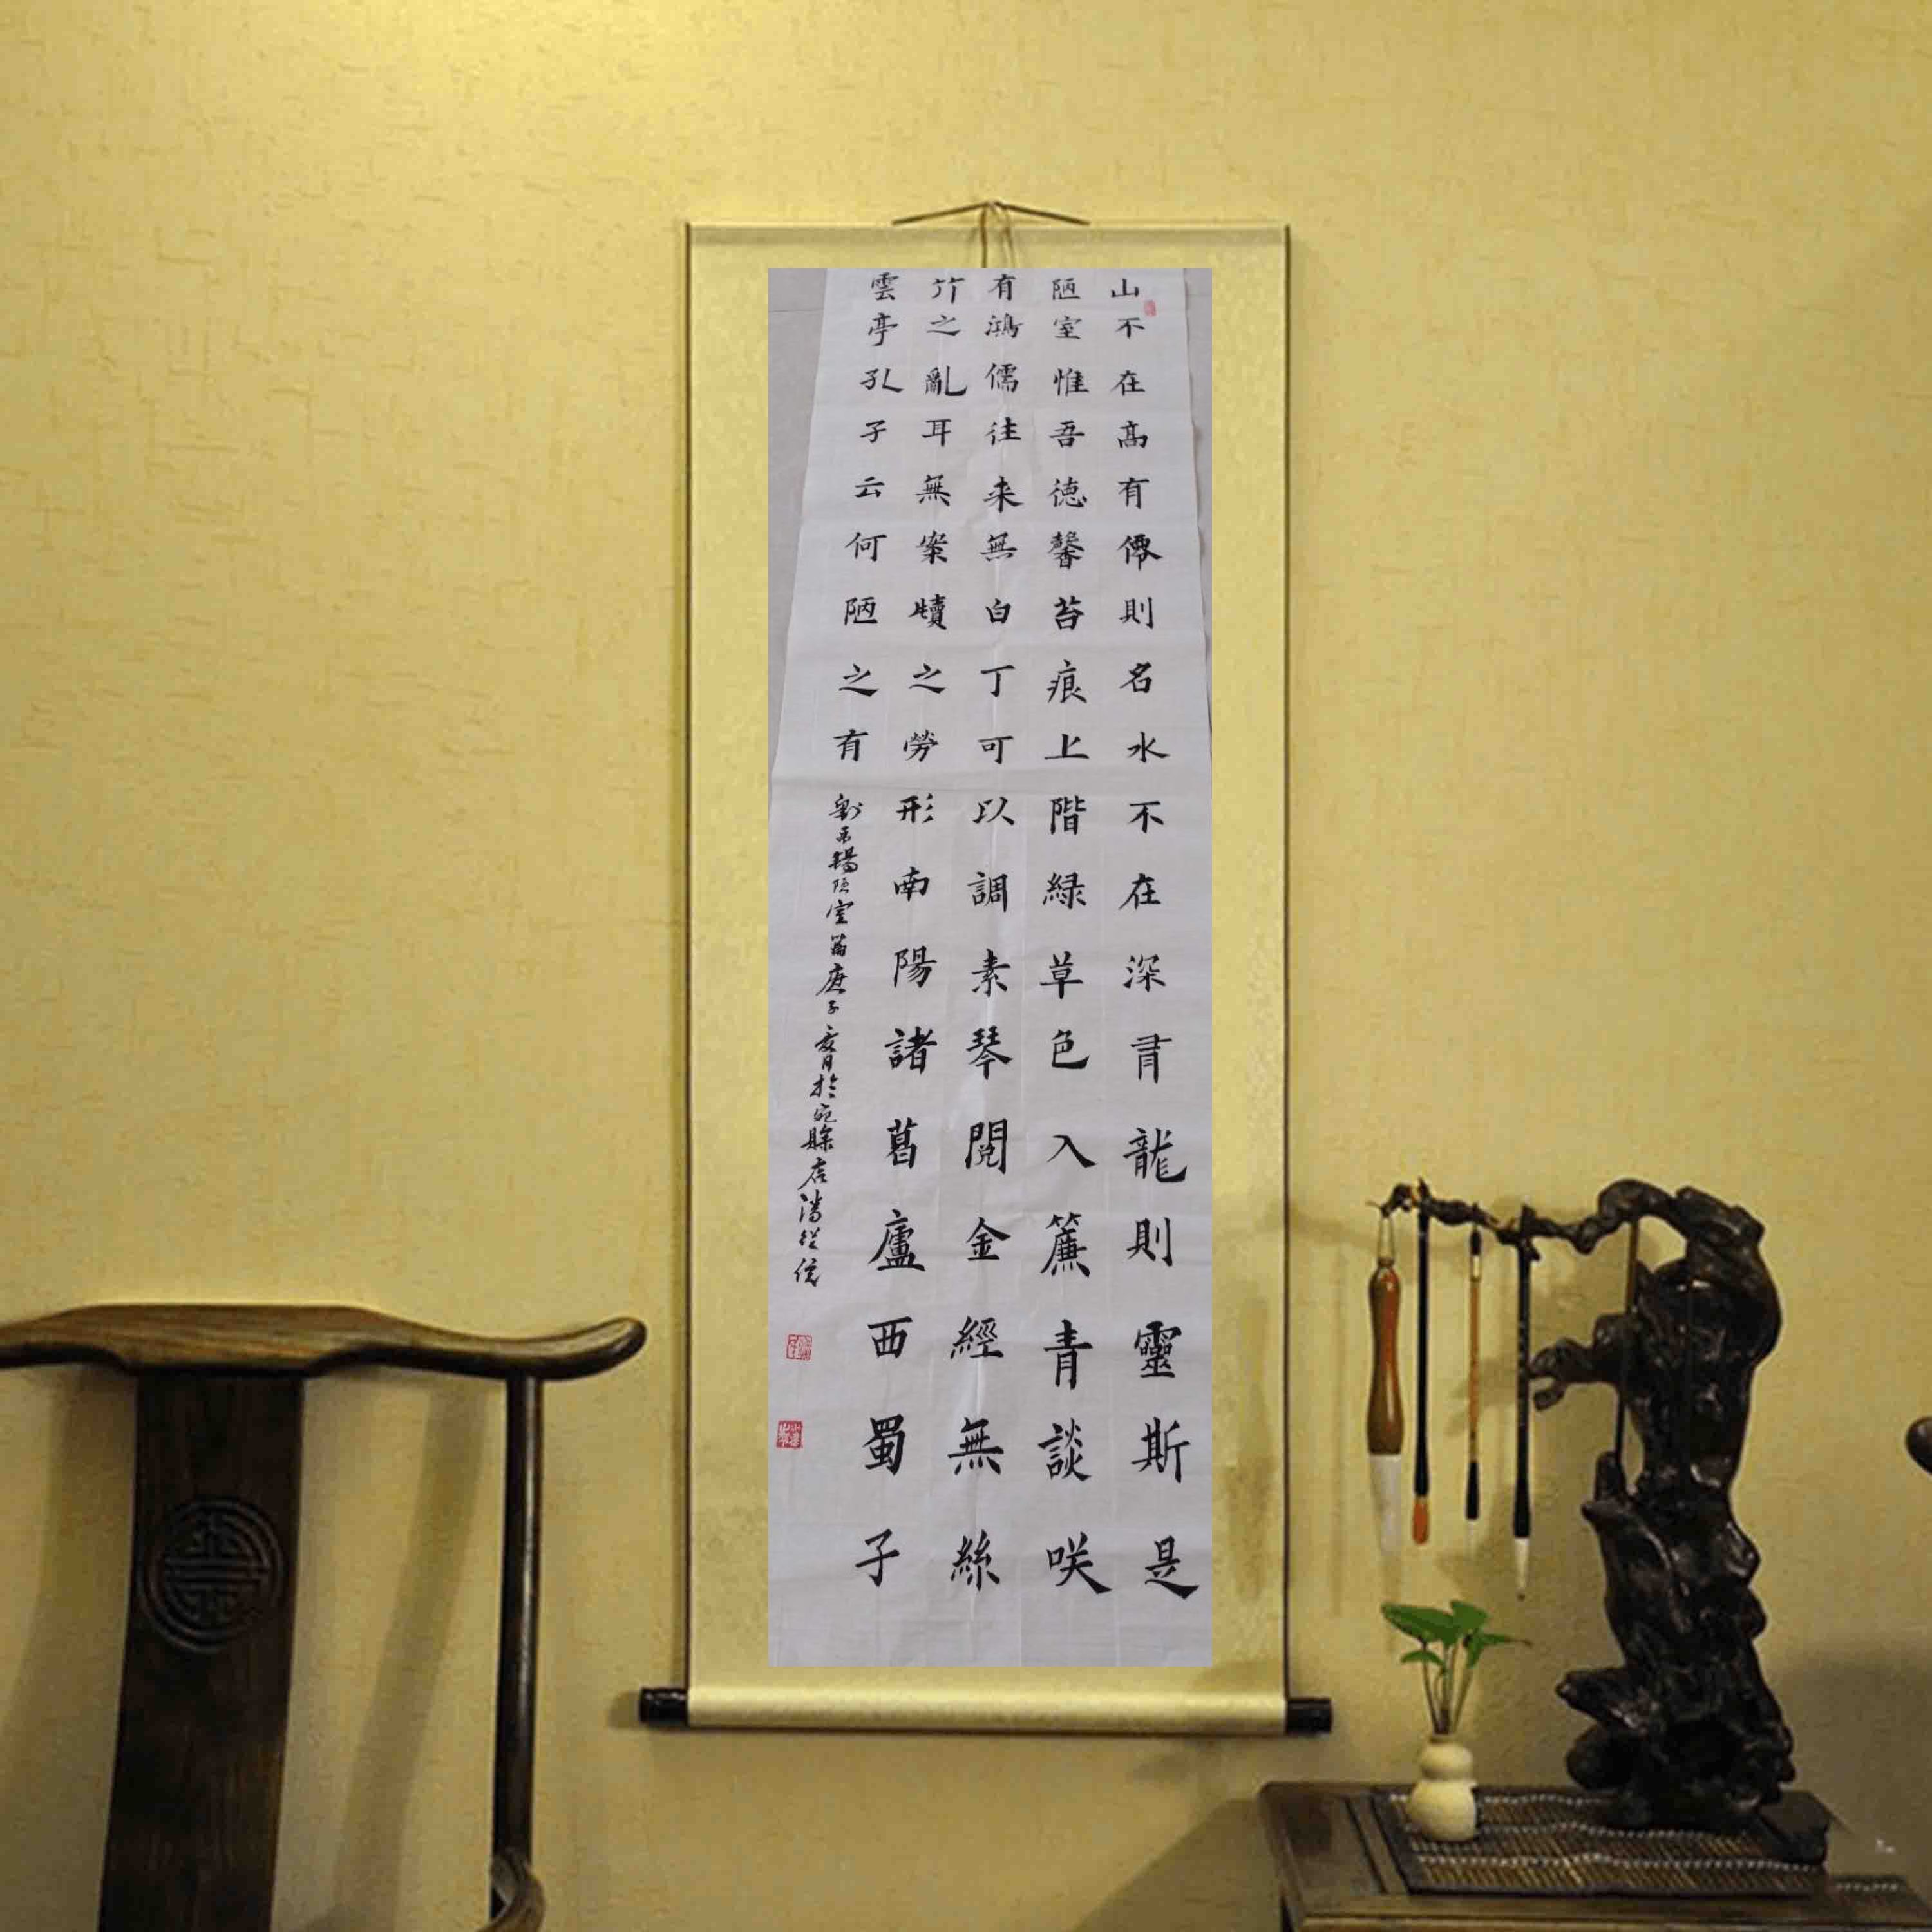 山不在高有僊則名水不在深有龍則靈斯是
陋室惟吾德馨苔痕上階緑草色入簾青談咲
有鴻儒往来無白丁可以調素琴閲金經無絲
竹之亂耳無案牘之勞形南陽諸葛廬西蜀子
雲亭孔子云何陋之有
劉禹錫陋室銘庚子夏月於宛賒店潘從信